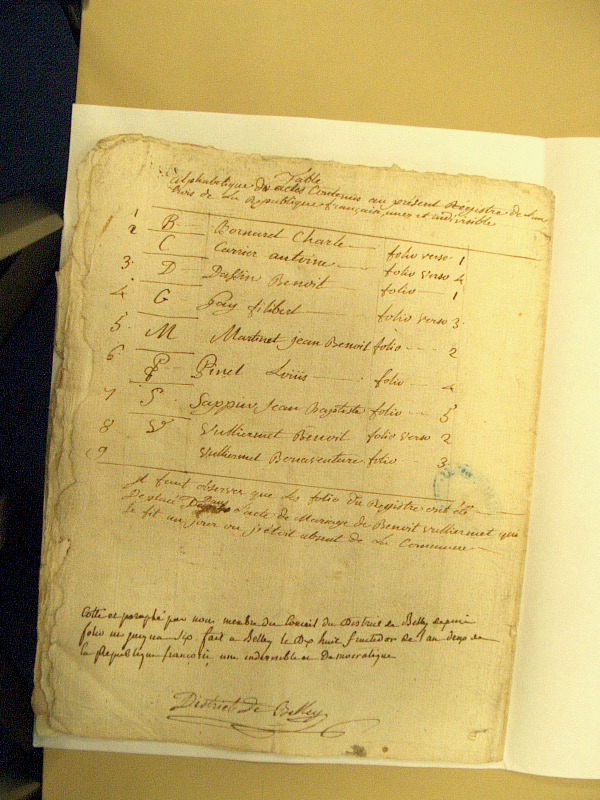 Table
Alphabetique des actes Contenus au présent Registre de L'an
trois de La République française, une et indivisible
1 B Bornaret Charle folio verso 1
2 C Carrier antoine folio verso 4
3 D Dassin Benoit folio 1
4 G Gay filibert folio verso 3
5 M Martinet jean Benoit folio 2
6 P Pinet Louis folio 4
7 S Sappin Jean Baptiste folio 5
8 V Vulliermet Benoit folio verso 2
9 Vulliermet Bonaventure folio 3
Il faut observer que Les folio du Registre ont été
Deplacé Dans L'acte de Mariage de Benoit Vulliermet que
Le fit un jour ou j'étoit absent de La Commune
Cotte et paraphé par nous membre du Conseil du District de Belley depuis
folio un jusqua Six fait a Belley le Dix huit fructidor de l'an deux de
la Republique francoise une indivisible et Democratique
District de Belley